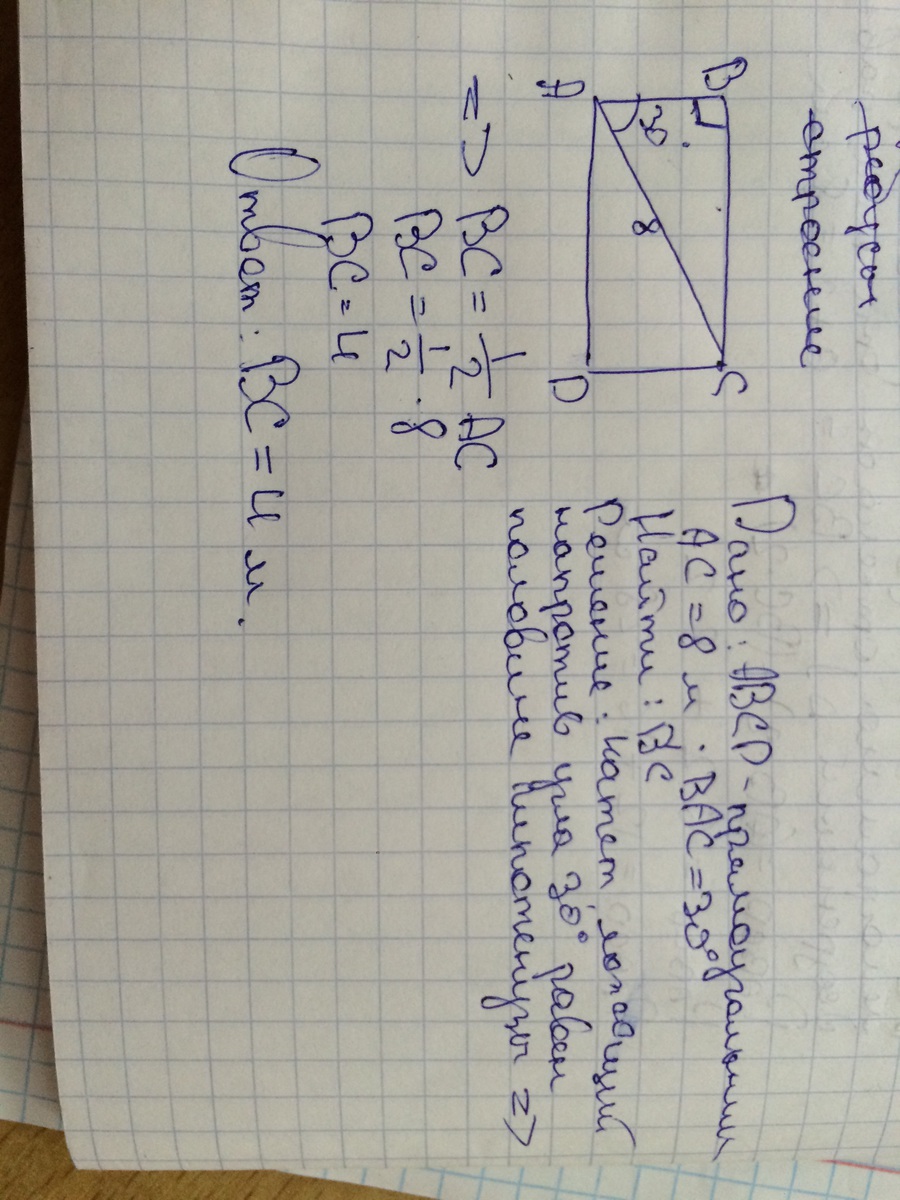 радиусы
строение
A B
30°
8
D C
Дано: ABCD - прямоугольник
AC = 8 м. BAC = 30°
Найти: BC
Решение: Катет лежащий
напротив угла 30° равен
половине гипотенузы =>
=> BC = 1/2 AC
BC = 1/2 · 8
BC = 4
Ответ: BC = 4 м.